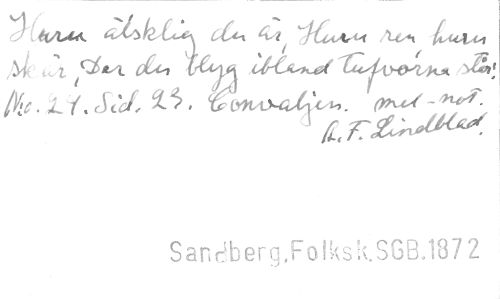 Huru älsklig du är, Huru ren huru
skär, Der du blyg ibland tufvorna står!
No. 24. Sid. 23. Convaljen. mel-not.
A. F. Lindblad.
Sandberg.Folksk.SGB.1872